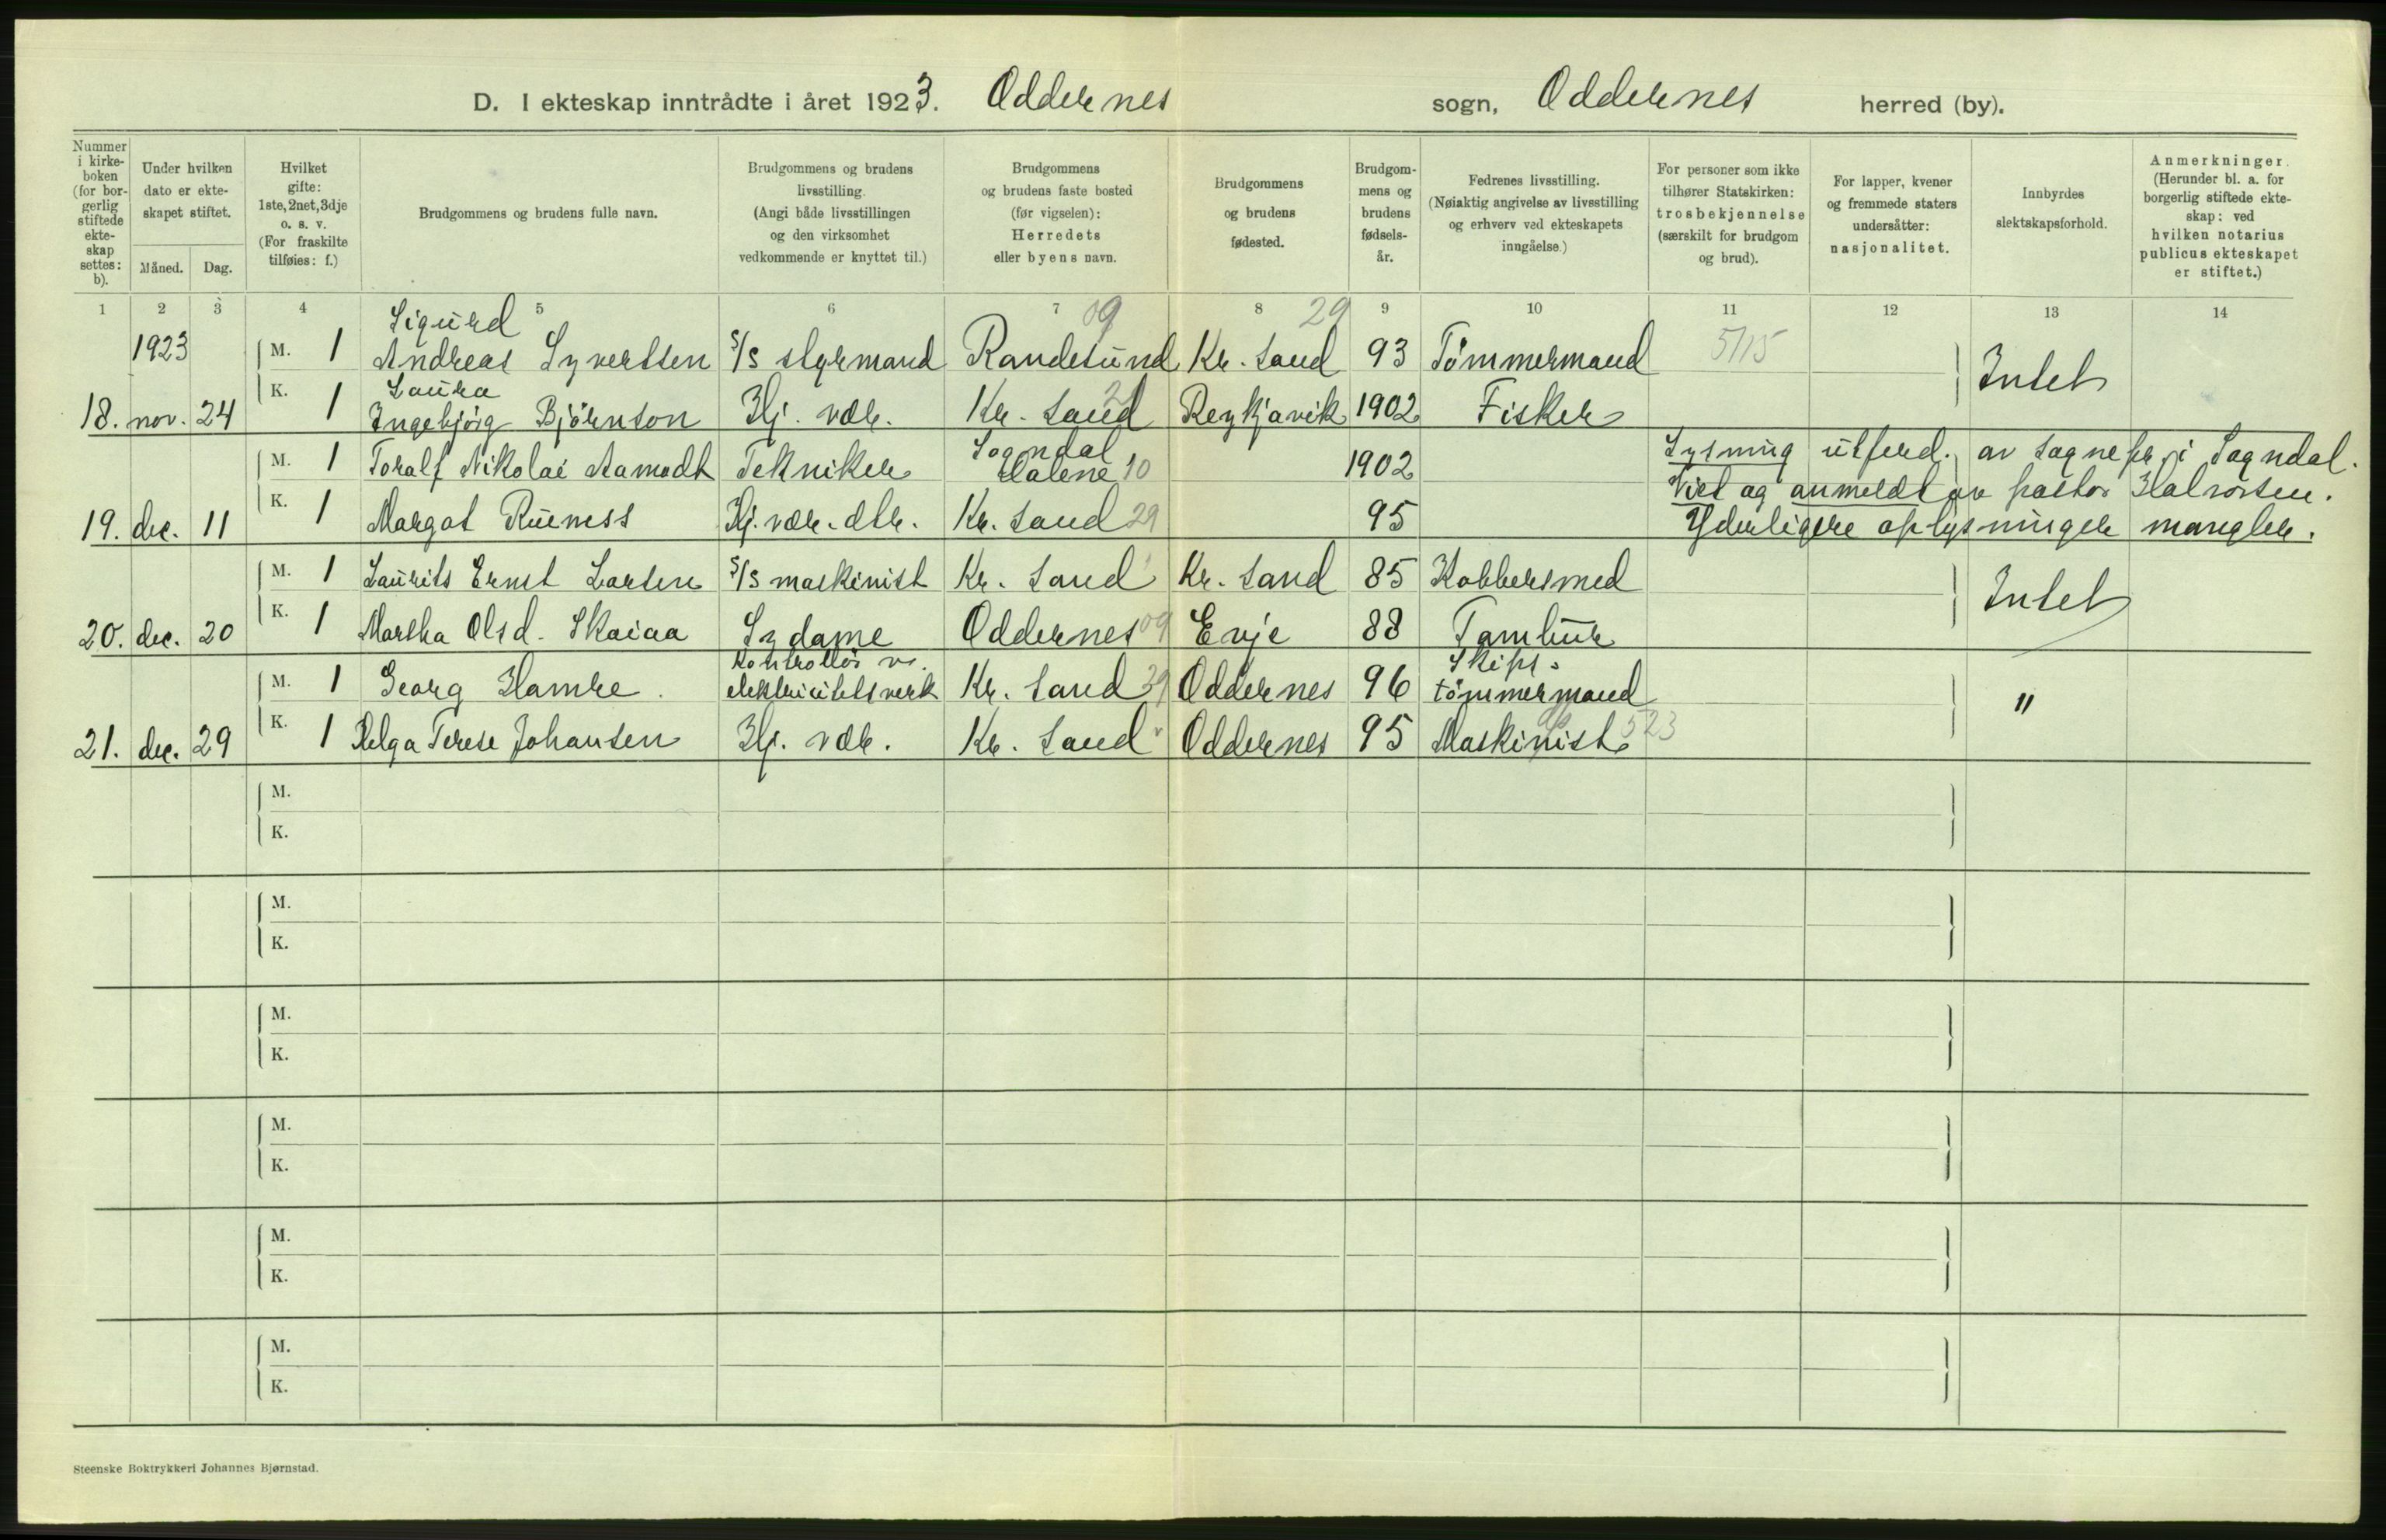 D. I ekteskap inntrådte i året 1923. Oddernes sogn, Oddernes herred (by).
Nummer i kirkeboken (for borgerlig stiftede ekteskap settes: b).
Under hvilken dato er ekteskapet stiftet.
Måned. Dag.
Hvilket gifte: 1ste, 2net, 3dje o. s. v. (For fraskilte tilføies: f.)
Brudgommens og brudens fulle navn.
Brudgommens og brudens livsstilling. (Angi både livsstillingen og den virksomhet vedkommende er knyttet til.)
Brudgommens og brudens faste bosted (før vigselen): Herredets eller byens navn.
Brudgommens og brudens fødested.
Brudgommens og brudens fødselsår.
Fedrenes livsstilling. (Nøiaktig angivelse av livsstilling og erhverv ved ekteskapets inngåelse.)
For personer som ikke tilhører Statskirken: trosbekjennelse (særskilt for brudgom og brud).
For lapper, kvener og fremmede staters undersåtter: nasjonalitet.
Innbyrdes slektskapsforhold.
Anmerkninger. (Herunder bl. a. for borgerlig stiftede ekteskap: ved hvilken notarius publicus ekteskapet er stiftet.)
1 2 3 4 5 6 7 8 9 10 11 12 13 14
09 29
1923 M. 1 Sigurd Andreas Syvertsen S/S styrmand Randesund Kr. sand 93 Tömmermand 5/15
Intet
18. nov. 24 K. 1 Laura Ingebjörg Björnson Hj. vær. Kr. sand Reykjavik 1902 Fisker
M. 1 Toralf Nikolai Aamodt Tekniker Sogndal Dalene 10 1902 Lysning utferd. av sognepr. i Sogndal.
Viet og anmeldt av pastor Halvorsen.
19. dec. 11 K. 1 Margot Rueness Hj. vær. dtr. Kr. sand 29 95 Yderligere oplysninger mangler.
M. 1 Laurits Ernst Larsen S/S maskinist Kr. sand Kr. sand 85 Kobbersmed
Intet
20. dec. 20 K. 1 Martha Olsd. Skaiaa Sydame Oddernes 09 Evje 88 Tambur
M. 1 Georg Hamre. Kontrollör v. elektricitetsverk Kr. sand 29 Oddernes 96 Skips-tömmermand
"
21. dec. 29 K. 1 Helga Terese Johansen Hj. vær. Kr. sand " Oddernes 95 Maskinist 523
M.
K.
M.
K.
M.
K.
M.
K.
M.
K.
M.
K.
Steenske Boktrykkeri Johannes Bjørnstad.